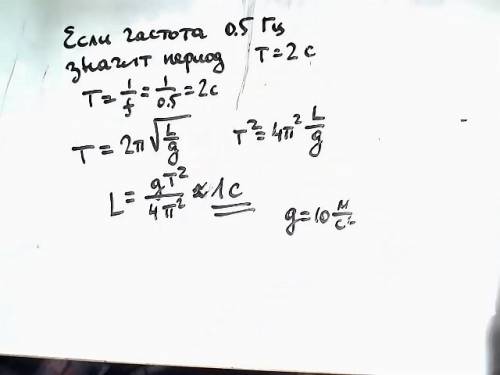 Если частота 0.5 Гц
значит период T = 2 с
T = 1/f = 1/0.5 = 2с
T = 2π√(L/g) T² = 4π² L/g
L = gT²/4π² ≈ 1с g = 10 м/с²